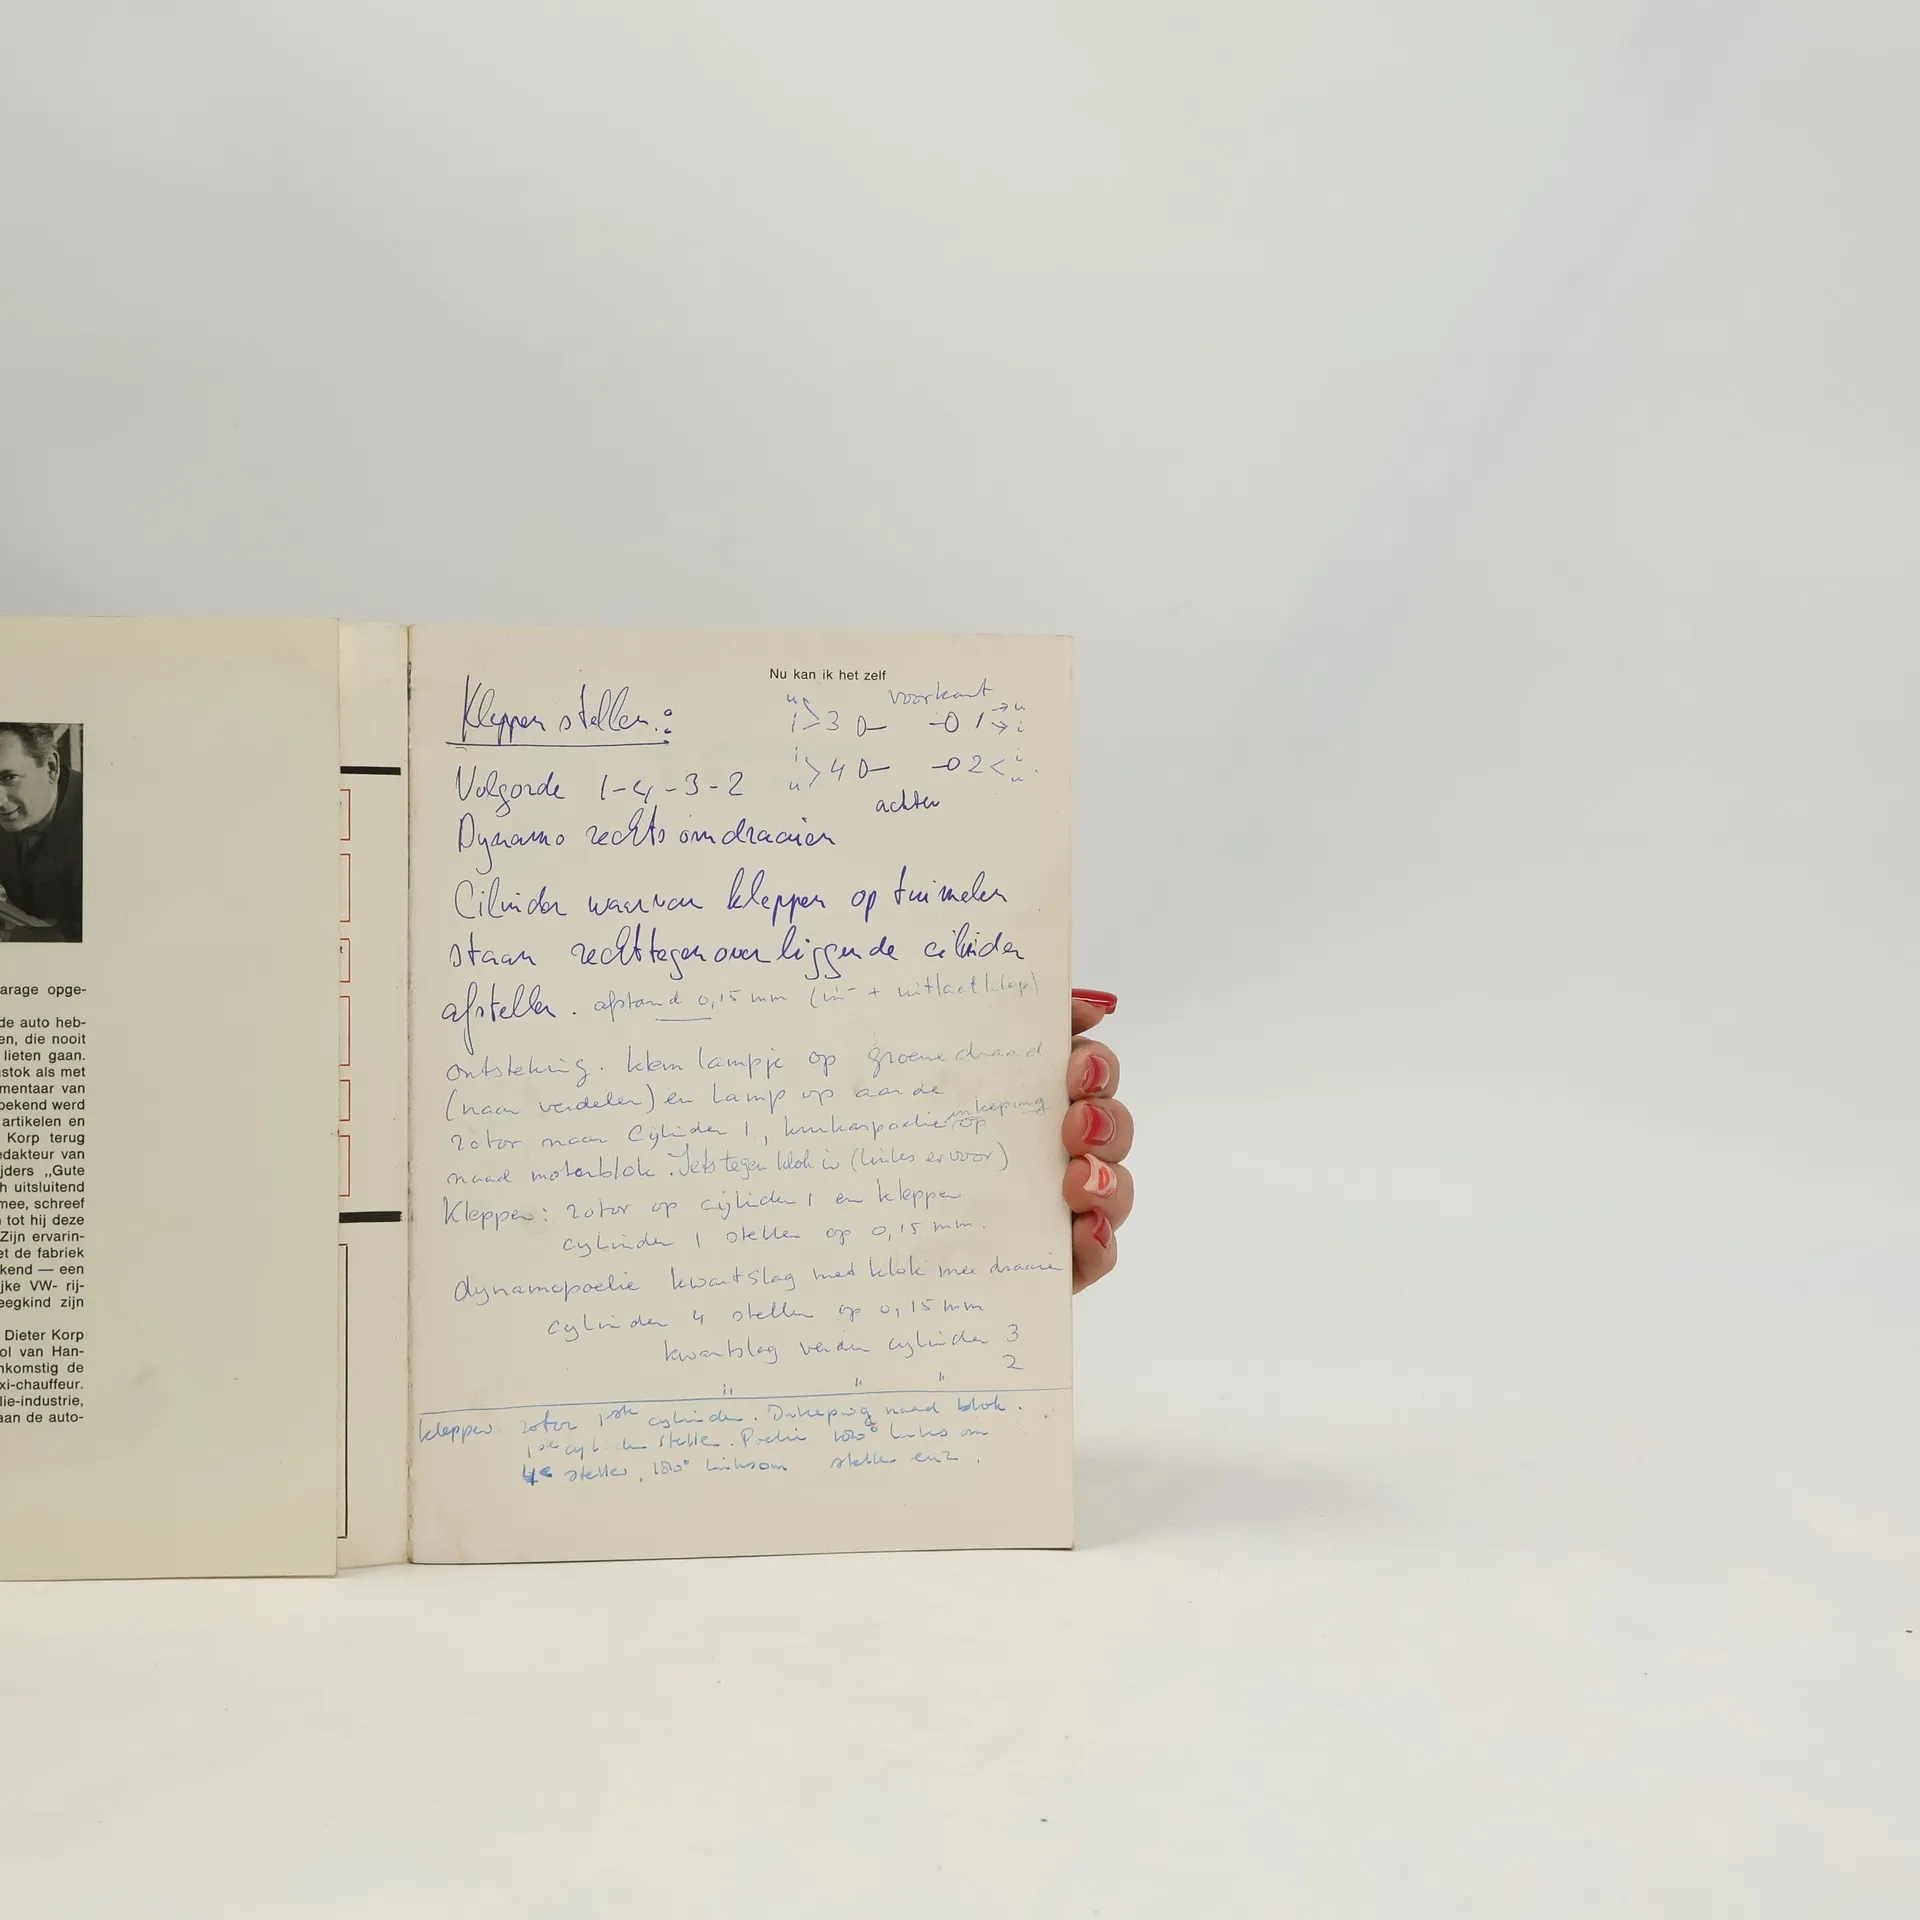 arage opge-
de auto heb-
en, die nooit
lieten gaan.
stok als met
mentaar van
bekend werd
artikelen en
Korp terug
edakteur van
jders „Gute
h uitsluitend
mee, schreef
tot hij deze
Zijn ervarin-
et de fabriek
kend — een
ijke VW- rij-
eegkind zijn
Dieter Korp
ol van Han-
nkomstig de
xi-chauffeur.
lie-industrie,
aan de auto-
Nu kan ik het zelf
Kleppen stellen:
voorkant
u
i > 3 0— —0 1 → u
→ i
i
u > 4 0— —0 2 < i
u
achter
Volgorde 1-4-3-2
Dynamo rechtsomdraaien
Cilinder waarvan kleppen op tuimelen
staan recht tegenover liggende cilinder
afstellen. afstand 0,15 mm (in- + uitlaatklep)
ontsteking. klem lampje op groene draad
(naar verdeler) en lamp op aarde
rotor naar Cylinder 1, krukaspoelie inkeping op
naad motorblok. Iets tegen klok in (links ervoor)
Kleppen: rotor op cylinder 1 en kleppen
cylinder 1 stellen op 0,15 mm.
dynamopoelie kwartslag met klok mee draaien
cylinder 4 stellen op 0,15 mm
kwartslag verder cylinder 3
" " " 2
kleppen rotor 1ste cylinder. Inkeping naad blok.
1ste cylinder stellen. Poelie 180° links om
4e stellen, 180° linksom stellen enz.